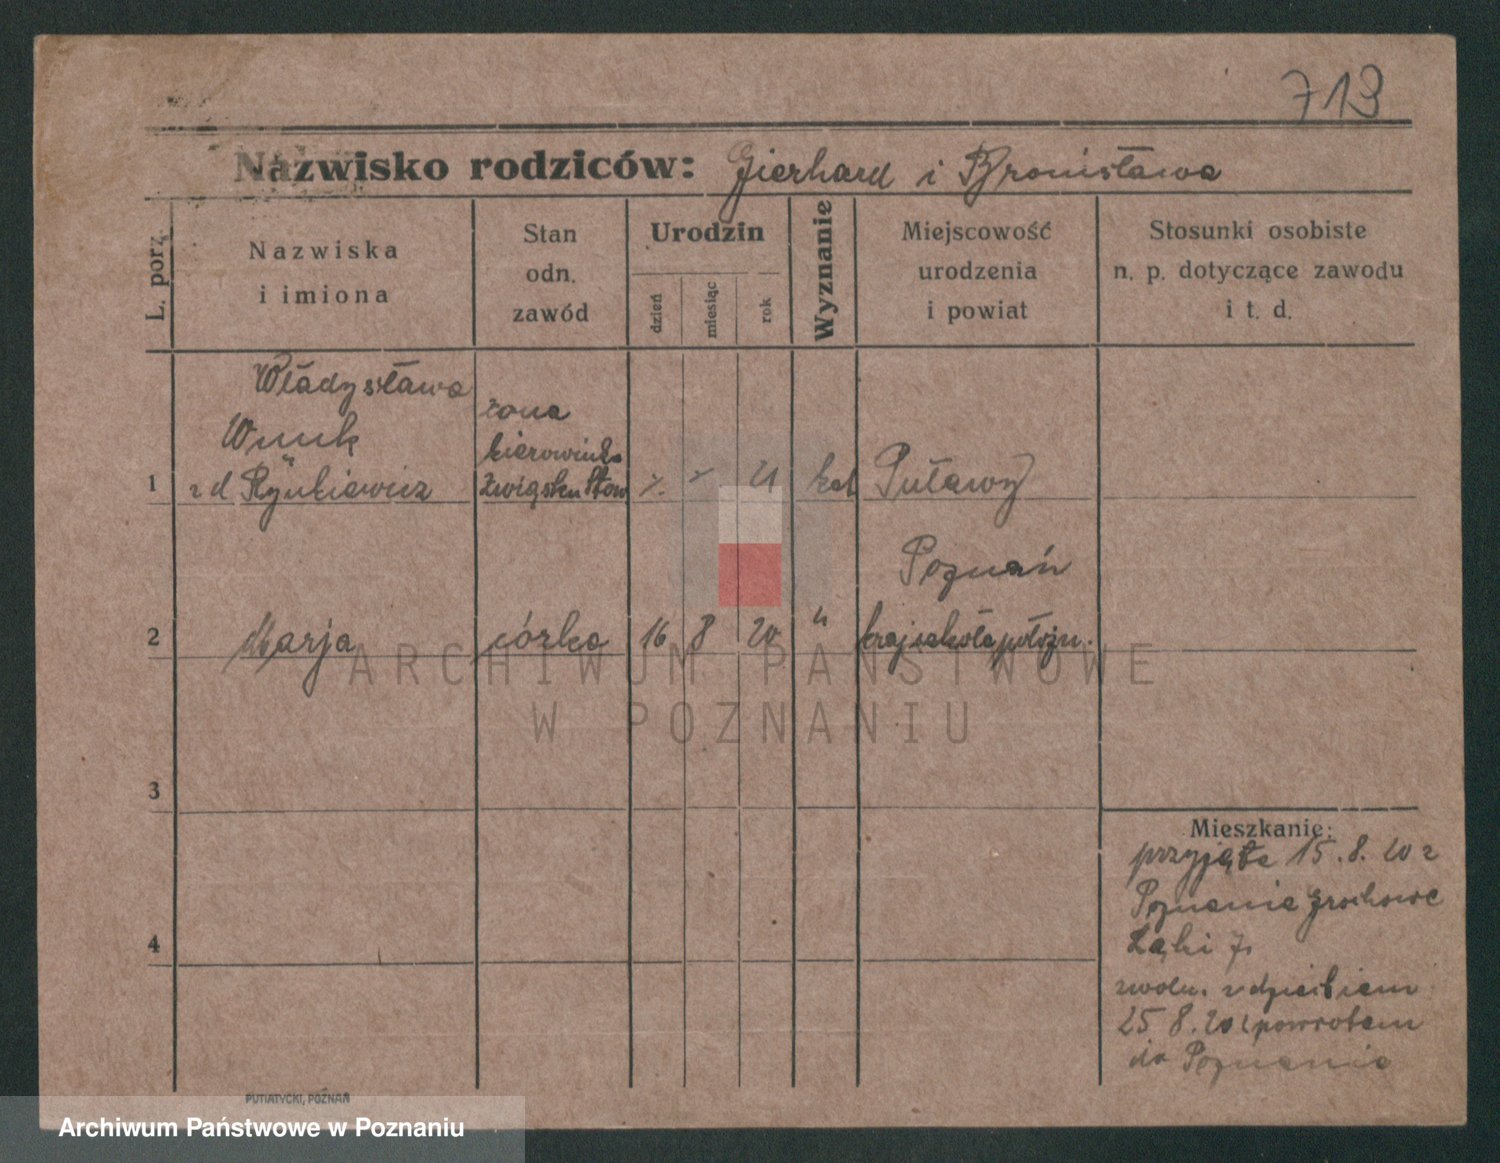 713
Nazwisko rodziców: Gierhard i Bronisława
L. porz.
Nazwiska
i imiona
Stan
odn.
zawód
Urodzin
dzień
miesiąc
rok
Wyznanie
Miejscowość
urodzenia
i powiat
Stosunki osobiste
n. p. dotyczące zawodu
i t. d.
1
Władysława
Wnuk
z d Rynkiewicz
żona
kierownika
Związku Stow
21
kat
Puławy
2
Marja
córka
16
8
20
"
Poznań
kraj szkoła położn.
3
4
Mieszkanie:
przyjęta 15.8.20 z
Poznania Grochowe
Łąki 7.
zwoln. z dzieckiem
25 8.20 z powrotem
do Poznania
PUTIATYCKI, POZNAŃ
ARCHIWUM PAŃSTWOWE
W POZNANIU
Archiwum Państwowe w Poznaniu